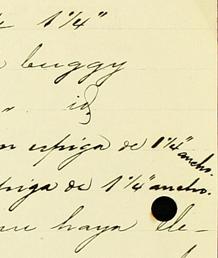 1 1/4"
buggy
" id
espiga de 1 1/4" ancho.
espiga de 1 1/4" ancho.
haya lle-